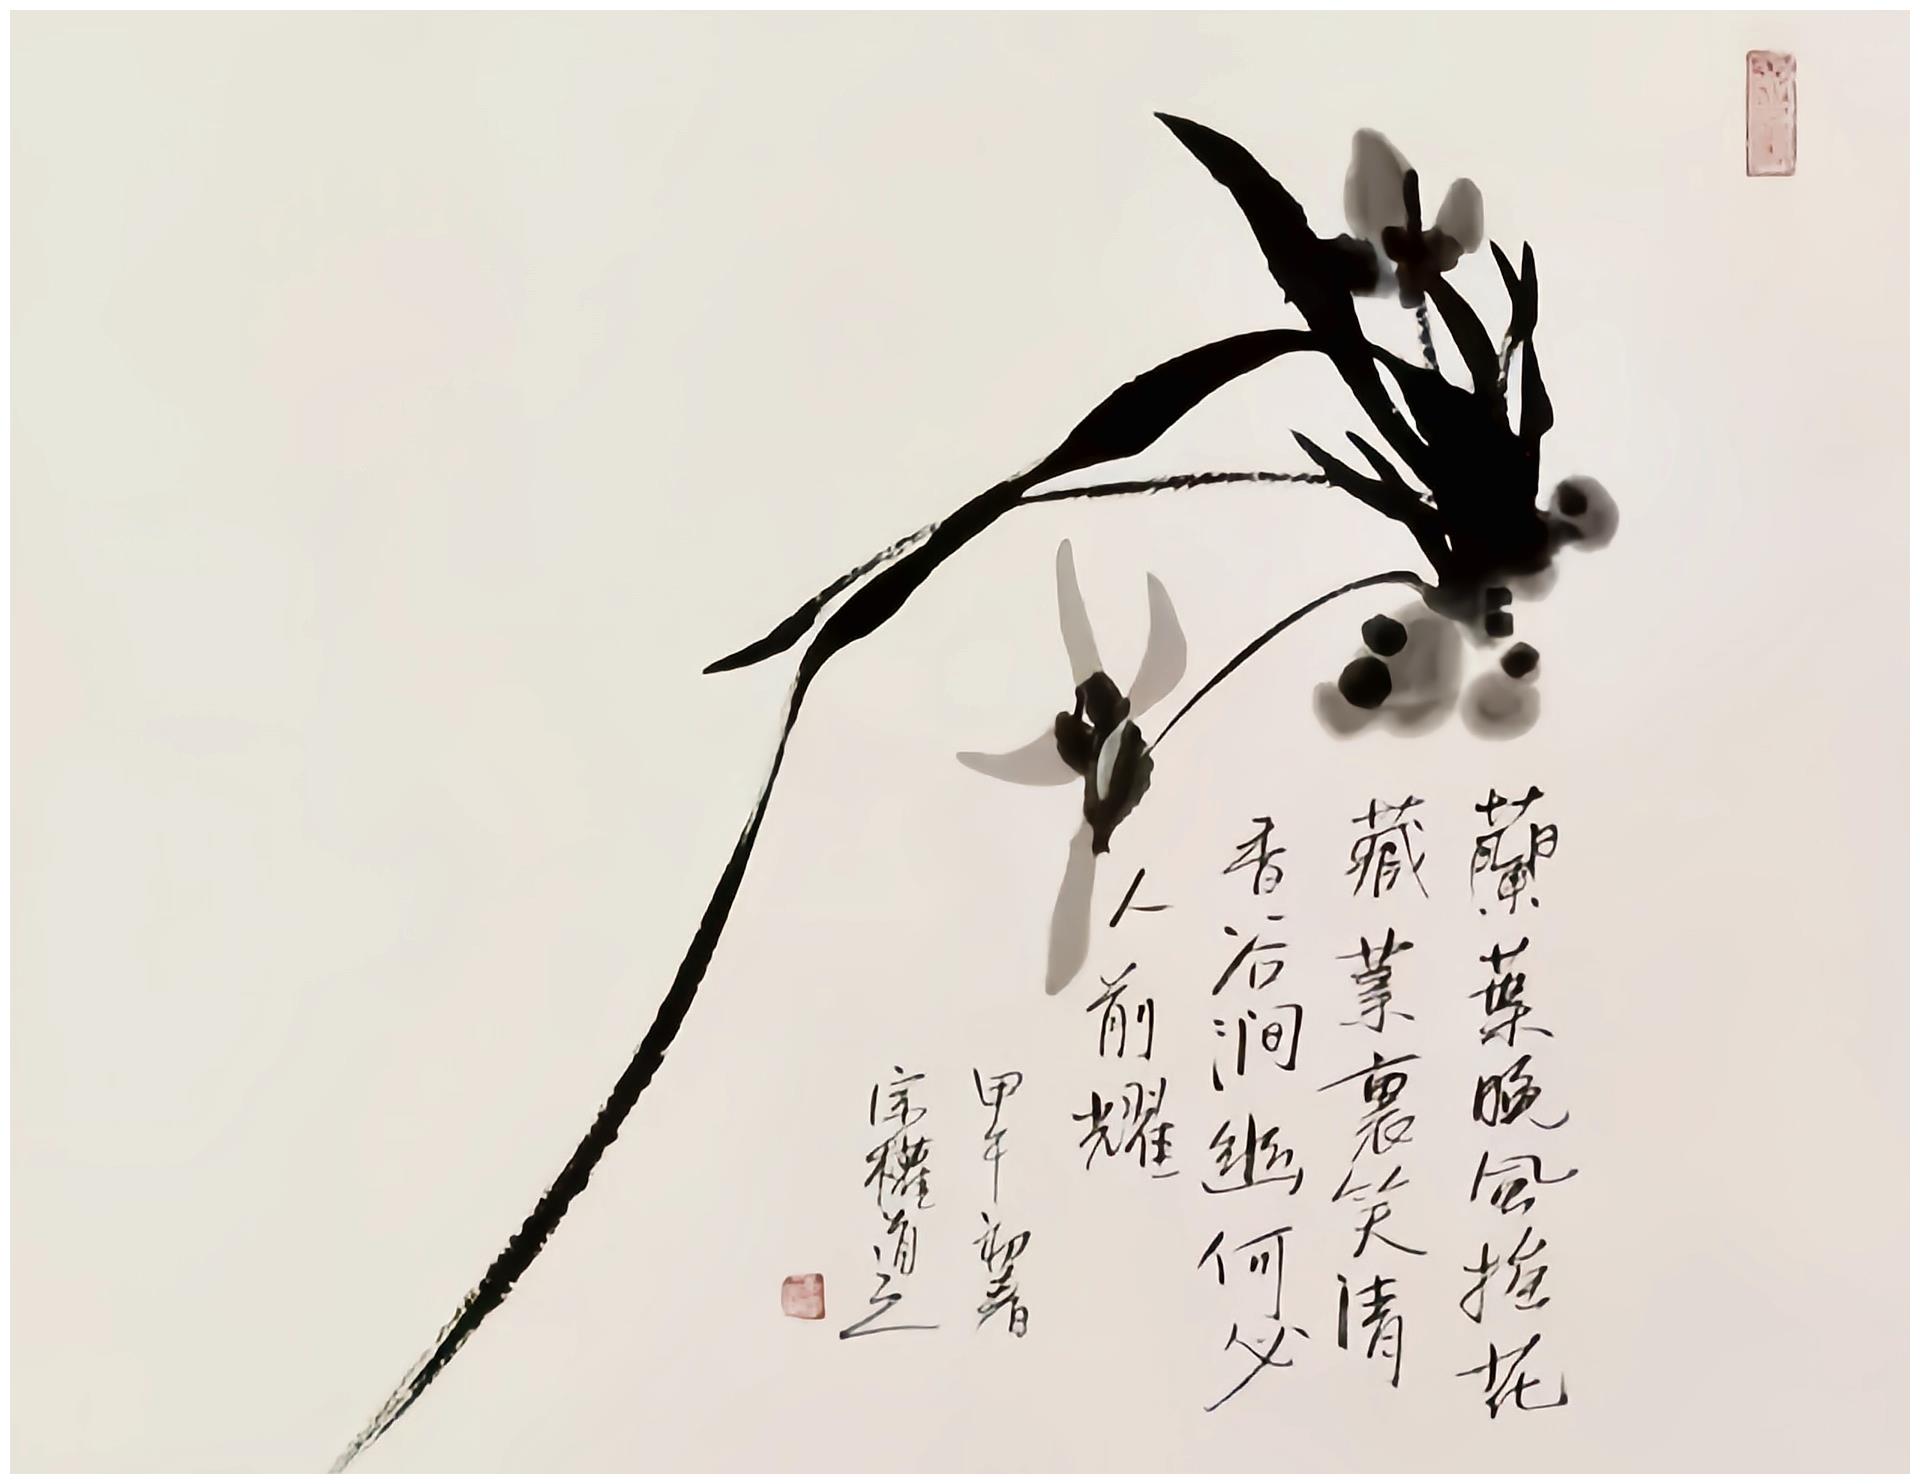 蘭葉晚風搖花
藏葉裏笑清
香谷澗幽何必
人前耀
甲午初春
宗權道之